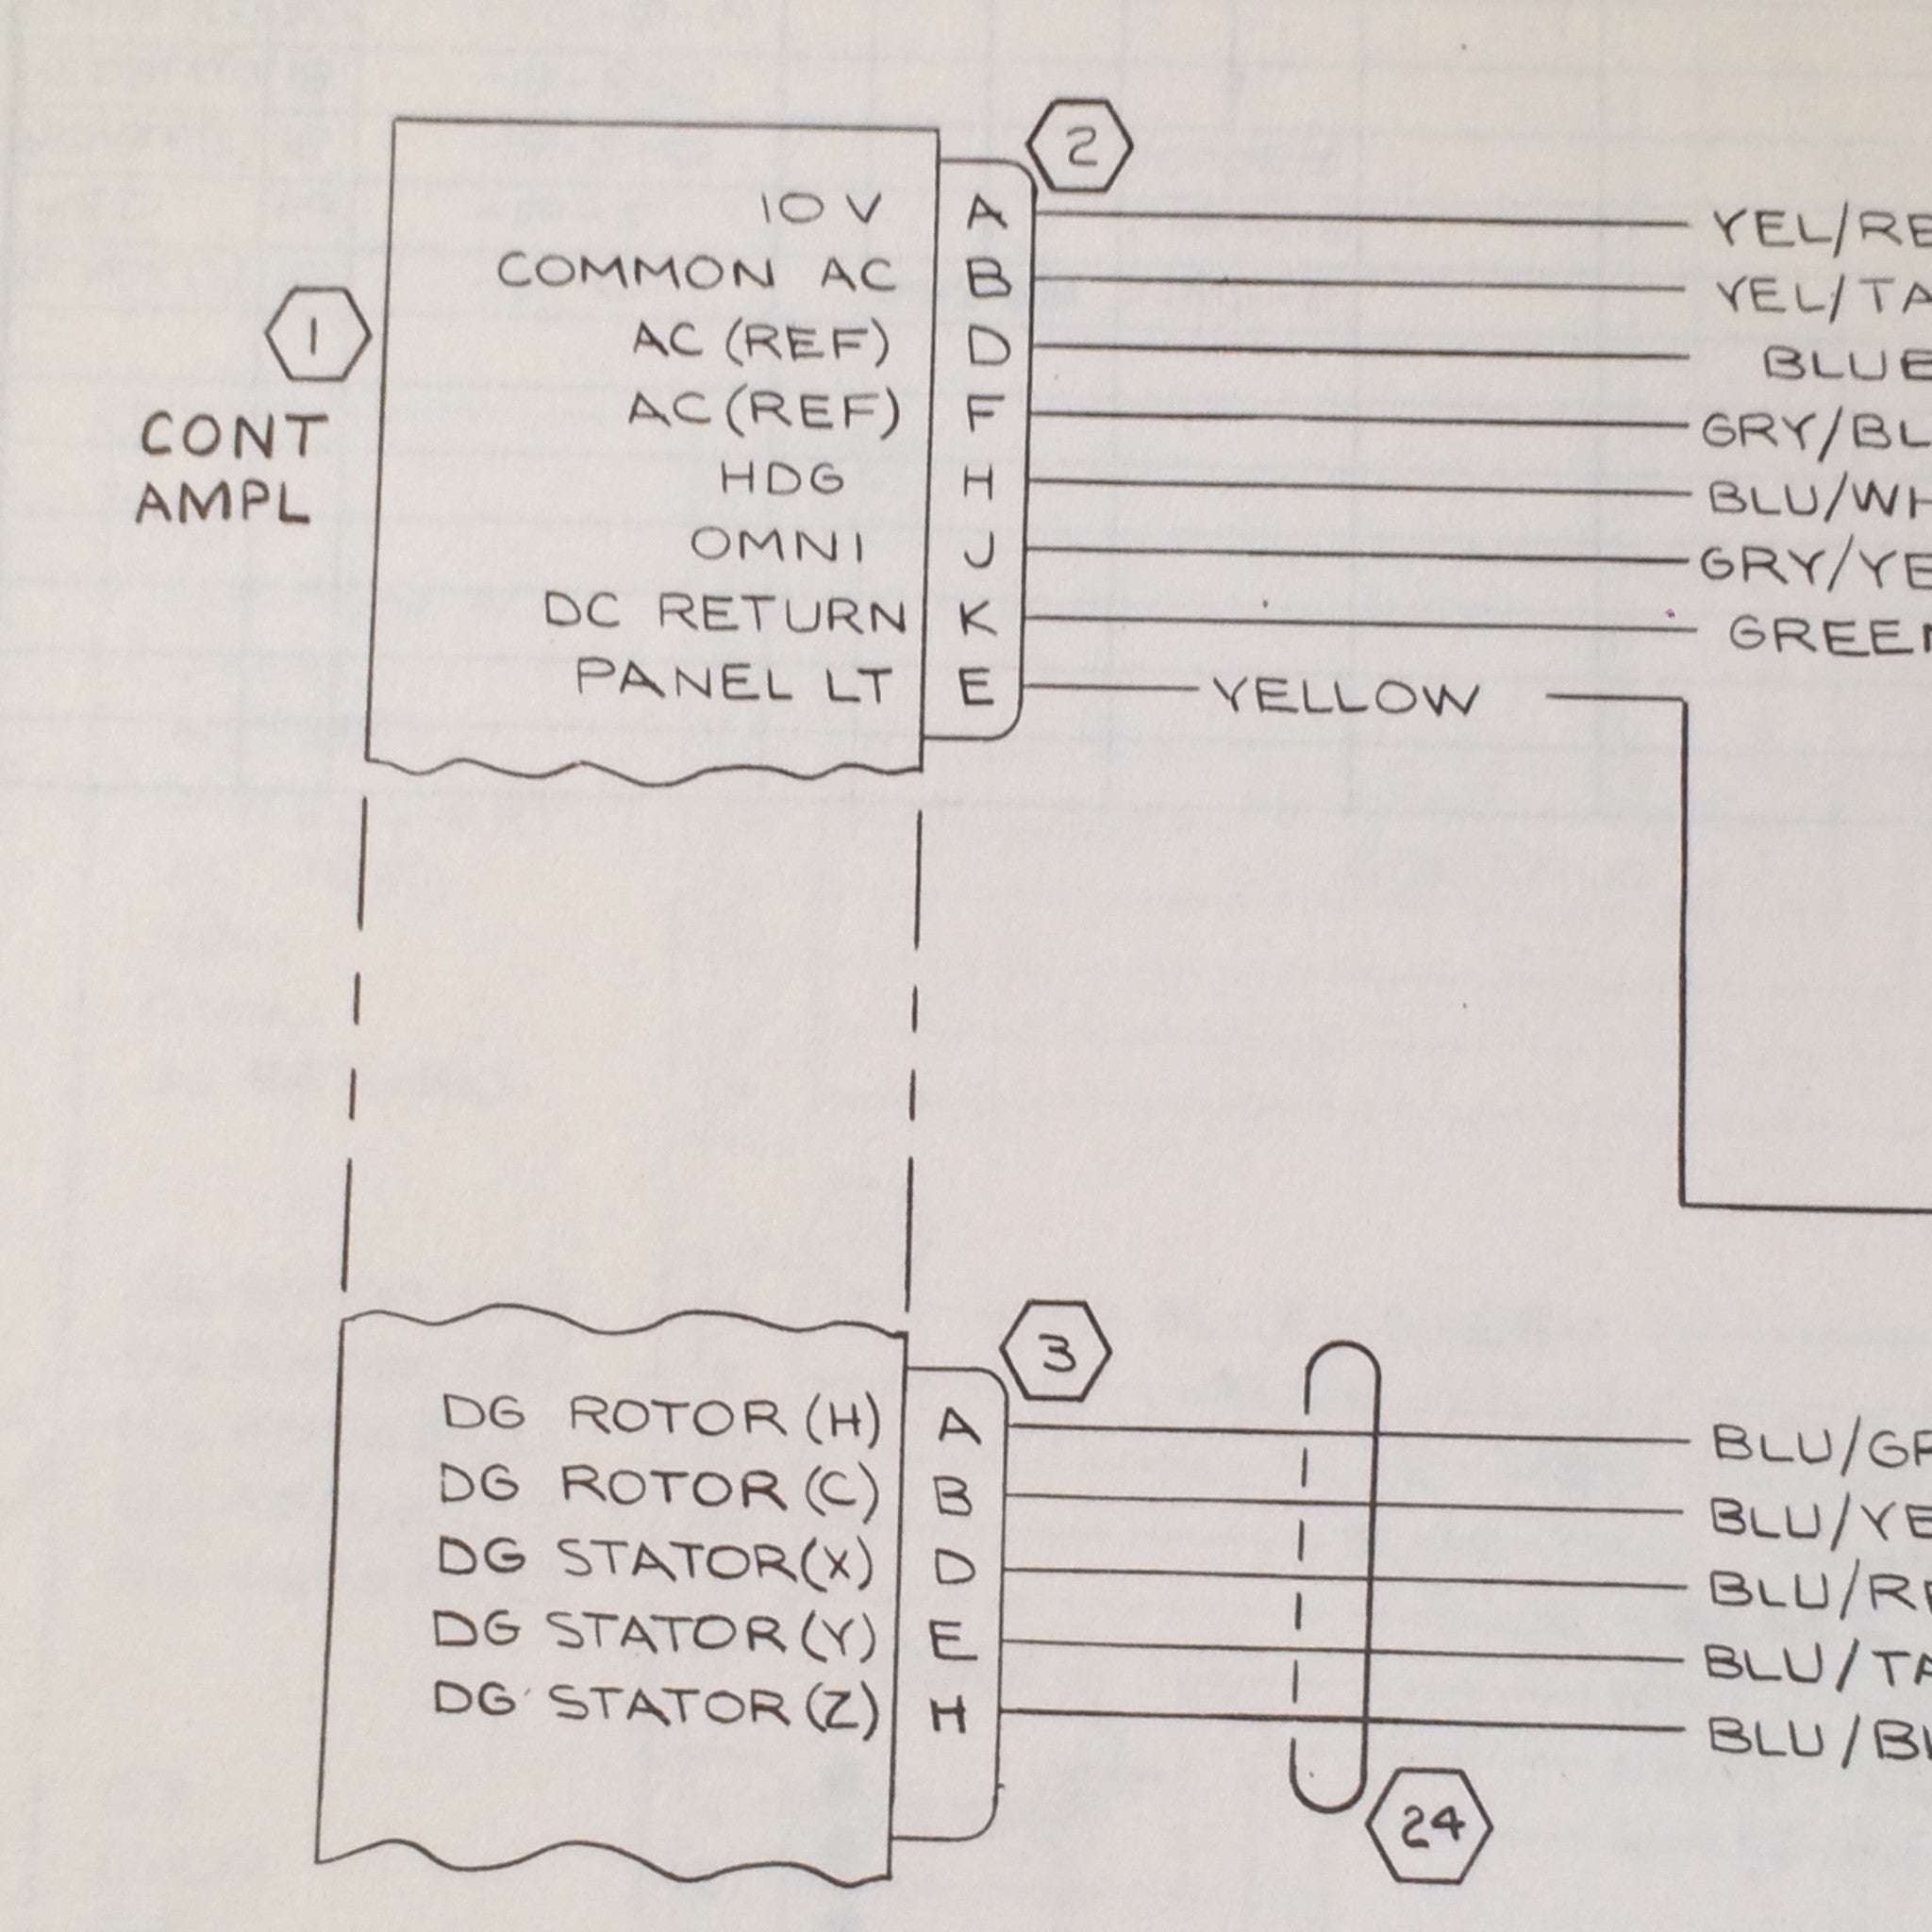 2
10 V A YEL/RE
COMMON AC B YEL/TA
1
AC (REF) D BLUE
AC (REF) F GRY/BL
CONT
AMPL
HDG H BLU/WH
OMNI J GRY/YE
DC RETURN K GREEN
PANEL LT E YELLOW
3
DG ROTOR (H) A BLU/GR
DG ROTOR (C) B BLU/YE
DG STATOR (X) D BLU/RE
DG STATOR (Y) E BLU/TA
DG STATOR (Z) H BLU/BL
24